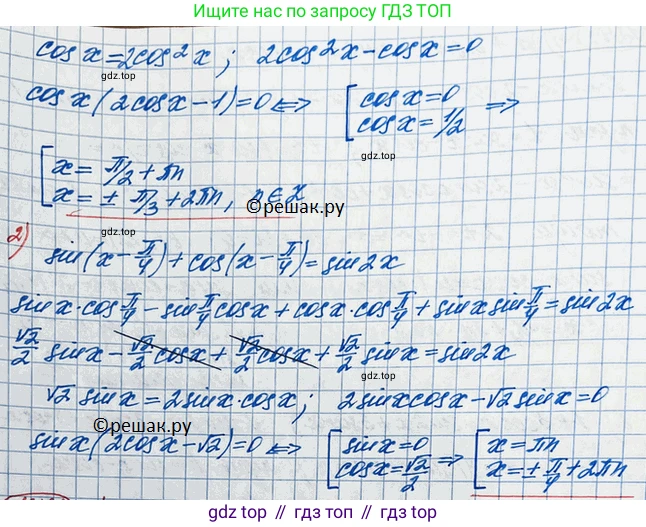 Ищите ответы по запросу ГДЗ ТОП
cos x = 2cos²x ; 2cos²x - cosx = 0
gdz.top
cos x (2cosx - 1) = 0 ⟺ [ cosx = 0 ⟹
cosx = 1/2
gdz.top
[ x = π/2 + πn
x = ± π/3 + 2πn, n∈Z
©решак.ру
gdz.top
2) sin(x - π/4) + cos(x - π/4) = sin2x
sin x · cos π/4 - sin π/4 cosx + cosx · cos π/4 + sinx sin π/4 = sin2x
√2/2 sinx - √2/2 cosx + √2/2 cosx + √2/2 sinx = sin2x
gdz.top
√2 sinx = 2sinx · cosx ; 2sinxcosx - √2 sinx = 0
©решак.ру
sinx (2cosx - √2) = 0 ⟺ [ sinx = 0 ⟹ [ x = πn
cosx = √2/2 x = ± π/4 + 2πn
gdz.top gdz.top